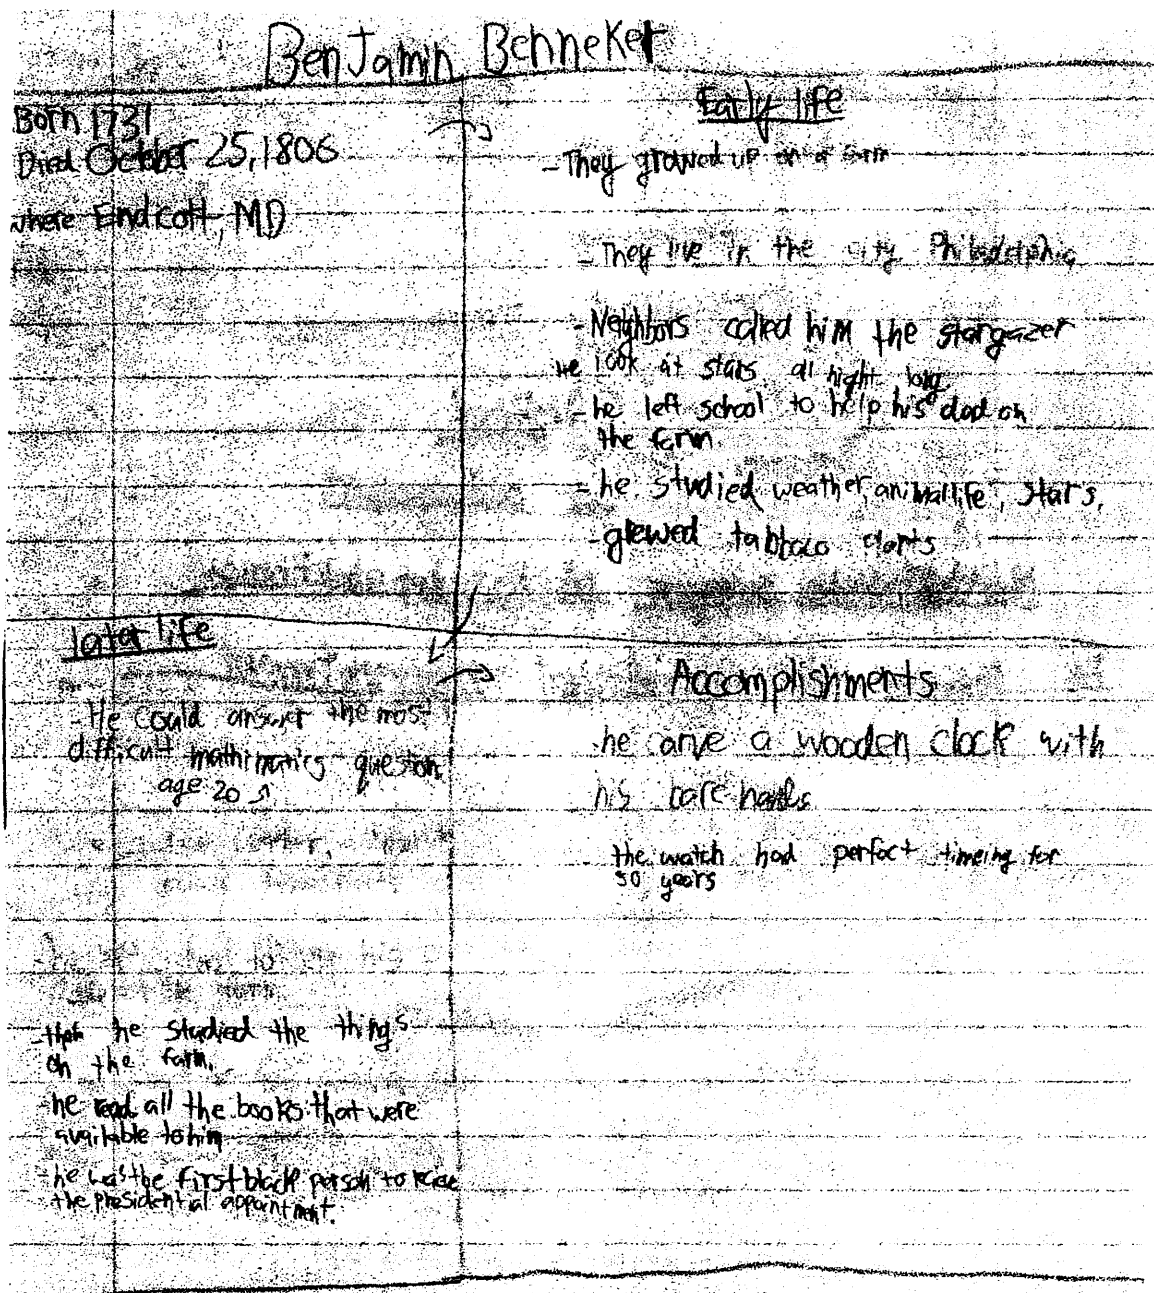 BenJamin Benneker
Born 1731
Died October 25, 1806
where Endicott, MD
Early life
- They growed up on a farm
- They live in the city Philadelphia
- Neighbors called him the stargazer
He look at stars all night long
- he left school to help his dad on
the farm.
- he studied weather, animal life, stars,
- grewed tabbaco
later life
- He could answer the most
difficult mathimatics question
age 20
- then he studied the things
on the farm.
- he read all the books that were
available to him
- he was the first black person to
the presidential appointment.
Accomplishments
he a wooden clock with
his bare hands
the watch had perfect timeing for
50 years